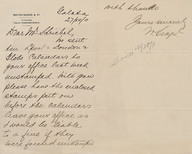 Colaba
27/10/10
Dear Mr Schrichel,
We sent
ten Kent & London &
Globe Calendars to
your office last week
unstamped. Will you
please have the enclosed
stamps put on
before the calendars
leave your office as
I would be liable
to a fine if they
were posted unstamped
with thanks
Yours sincerely